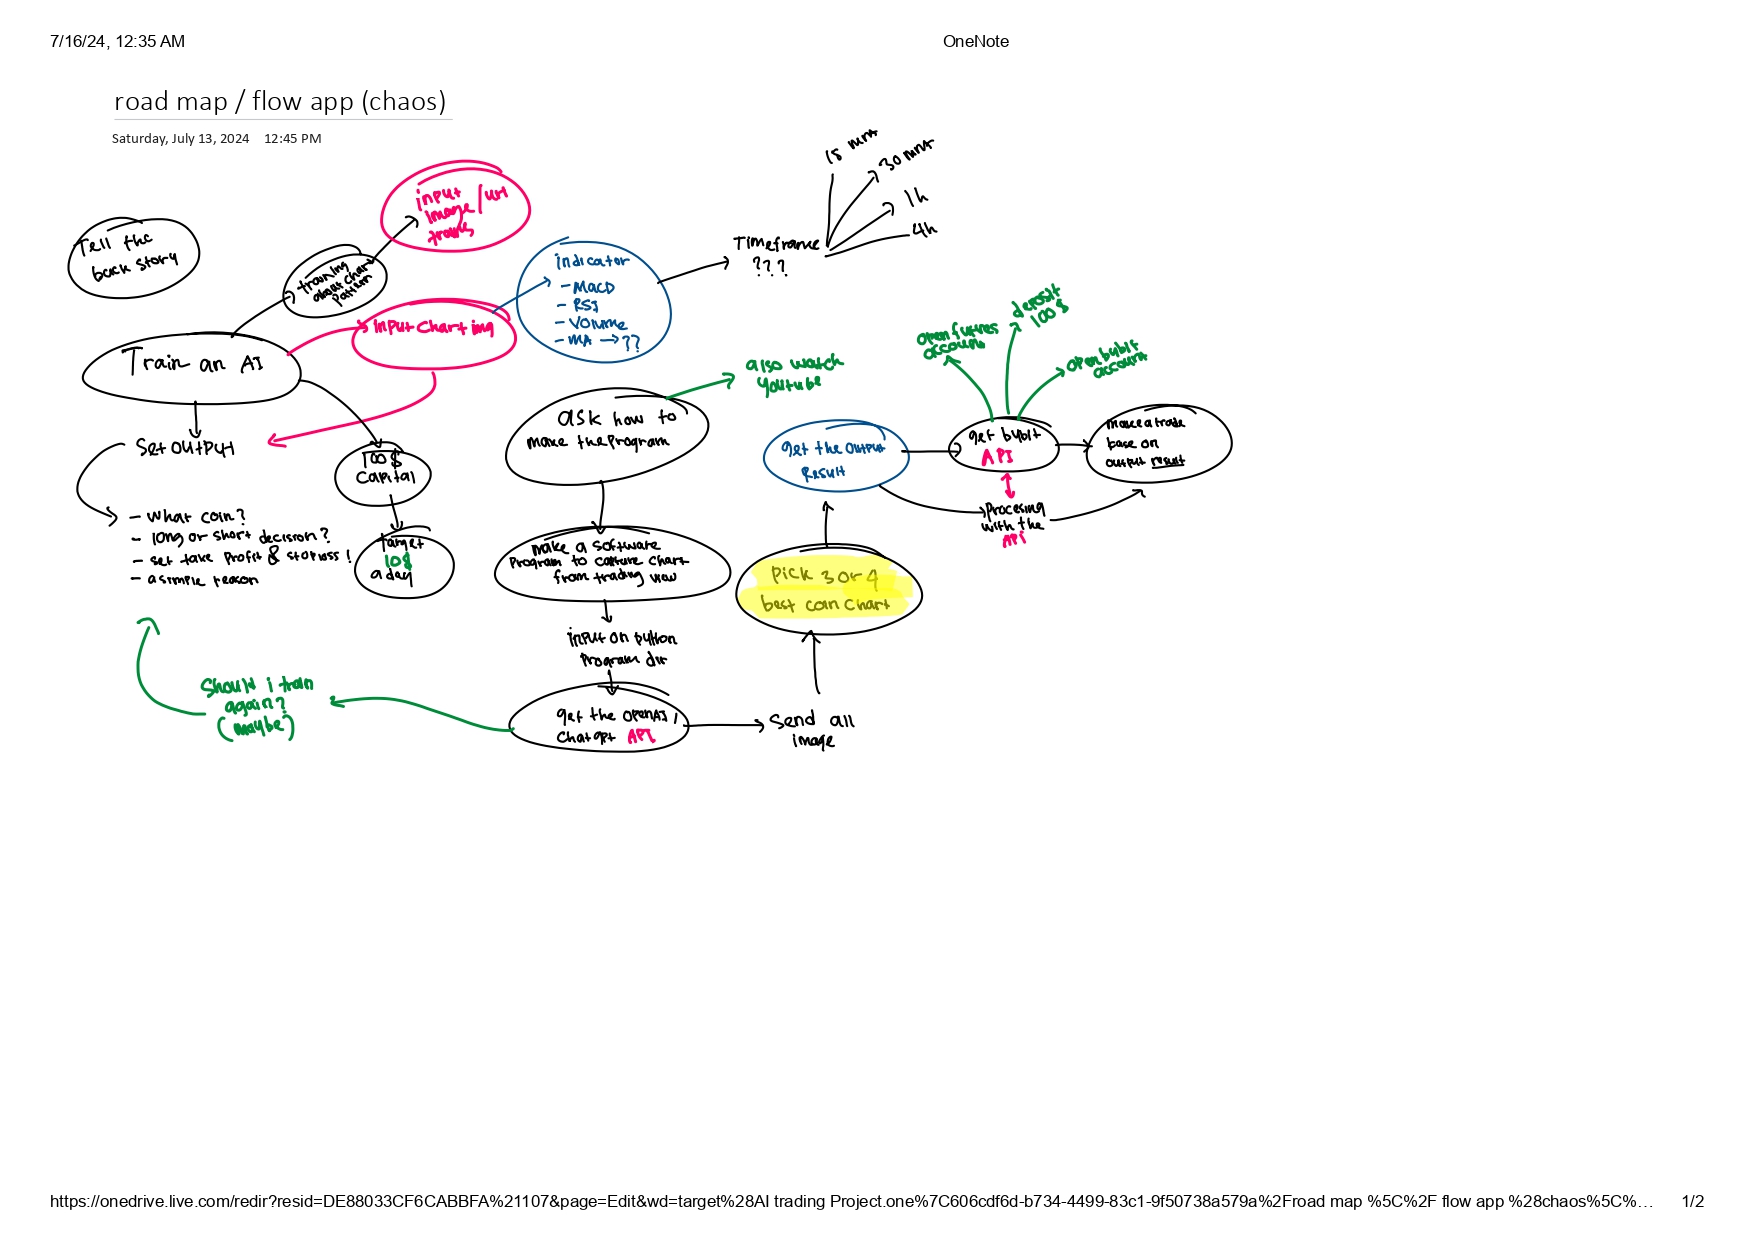 7/16/24, 12:35 AM
OneNote
road map / flow app (chaos)
Saturday, July 13, 2024 12:45 PM
Tell the
back story
training
about chart
pattern
input
image / url
Train an AI
input charting
indicator
- MACD
- RSI
- VOLUME
- MA → ??
Timeframe
???
15 mnt
30 mnt
1h
4h
Set output
- what coin?
- long or short decision?
- set take profit & stoploss!
- a simple reason
100$
Capital
target
10$
a day
ask how to
make the program
also watch
Youtube
make a software
program to capture chart
from trading view
input on python
program dir
get the OPENAI /
Chatgpt API
Should i train
again?
(maybe)
Send all
image
pick 3 or 4
best coin chart
get the output
Result
get bybit
API
open futures
account
deposit
100$
open bybit
account
Procesing
with the
API
make a trade
base on
output result
https://onedrive.live.com/redir?resid=DE88033CF6CABBFA%21107&page=Edit&wd=target%28AI trading Project.one%7C606cdf6d-b734-4499-83c1-9f50738a579a%2Froad map %5C%2F flow app %28chaos%5C%…
1/2